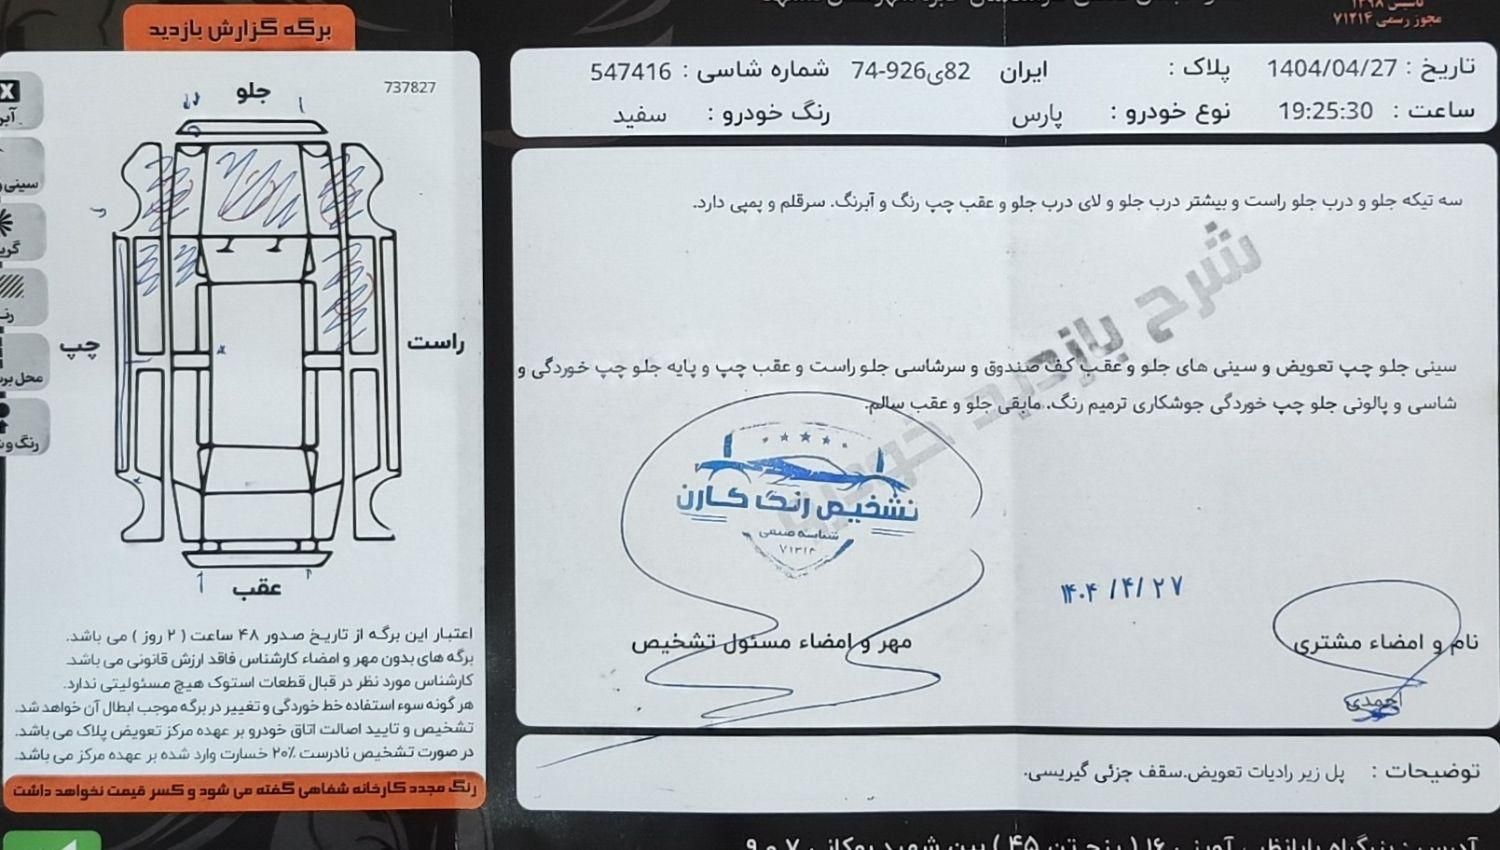 تاسیس ۱۳۹۸
مجوز رسمی ۷۱۲۱۴
برگه گزارش بازدید
تاریخ : 1404/04/27 پلاک : ایران 82ی926-74 شماره شاسی : 547416
ساعت : 19:25:30 نوع خودرو : پارس رنگ خودرو : سفید
737827
جلو
راست
چپ
عقب
سه تیکه جلو و درب جلو راست و بیشتر درب جلو و لای درب جلو و عقب چپ رنگ و آبرنگ. سرقلم و پمپی دارد.
شرح بازدید خودرو
سینی جلو چپ تعویض و سینی های جلو و عقب کف صندوق و سرشاسی جلو راست و عقب چپ و پایه جلو چپ خوردگی و
شاسی و پالونی جلو چپ خوردگی جوشکاری ترمیم رنگ. مابقی جلو و عقب سالم.
تشخیص رنگ کارن
شناسه صنفی
۷۱۲۱۴
۱۴۰۴/۴/۲۷
نام و امضاء مشتری
احمدی
مهر و امضاء مسئول تشخیص
توضیحات : پل زیر رادیات تعویض.سقف جزئی گیریسی.
اعتبار این برگه از تاریخ صدور ۴۸ ساعت ( ۲ روز ) می باشد.
برگه های بدون مهر و امضاء کارشناس فاقد ارزش قانونی می باشد.
کارشناس مورد نظر در قبال قطعات استوک هیچ مسئولیتی ندارد.
هر گونه سوء استفاده خط خوردگی و تغییر در برگه موجب ابطال آن خواهد شد.
تشخیص و تایید اصالت اتاق خودرو بر عهده مرکز تعویض پلاک می باشد.
در صورت تشخیص نادرست ۲۰٪ خسارت وارد شده بر عهده مرکز می باشد.
رنگ مجدد کارخانه شفاهی گفته می شود و کسر قیمت نخواهد داشت